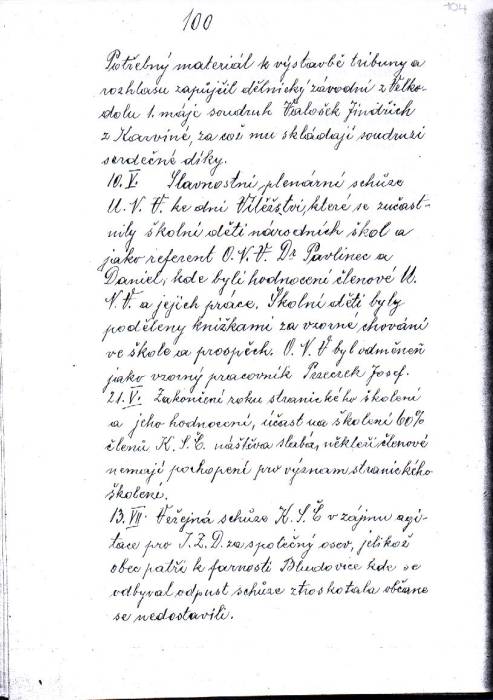 100
104
Potřebný materiál k výstavbě tribuny a
rozhlasu zapůjčil dělnický závodní z Velko-
dolu 1. máje soudruh Valošek Jindřich
z Karviné, za což mu skládají soudruzi
serdečné díky.
10. V. Slavnostní plenární schůze
M. N. V. ke dni Vítězství, které se zúčast-
nily školní děti národních škol a
jako referent O. N. V. Dr Pavlinec a
Daniel, kde byli hodnocení členové M.
N. V. a jejich práce. Školní děti byly
poděleny knížkami za vzorné chování
ve škole a prospěch. O. N. V byl odměněn
jako vzorný pracovník Przeczek Josef.
21. V. Zakončení roku stranického školení
a jeho hodnocení, účast na školení 60%
členů K. S. Č. náštěva slabá, někteří členové
nemají pochopení pro význam stranického
školení.
13. VII. Veřejná schůze K. S. Č v zájmu agi-
tace pro J. Z. D. za společný osev, jelikož
obec patří k farnosti Bludovice kde se
odbyval odpust schůze ztroskotala občane
se nedostavili.